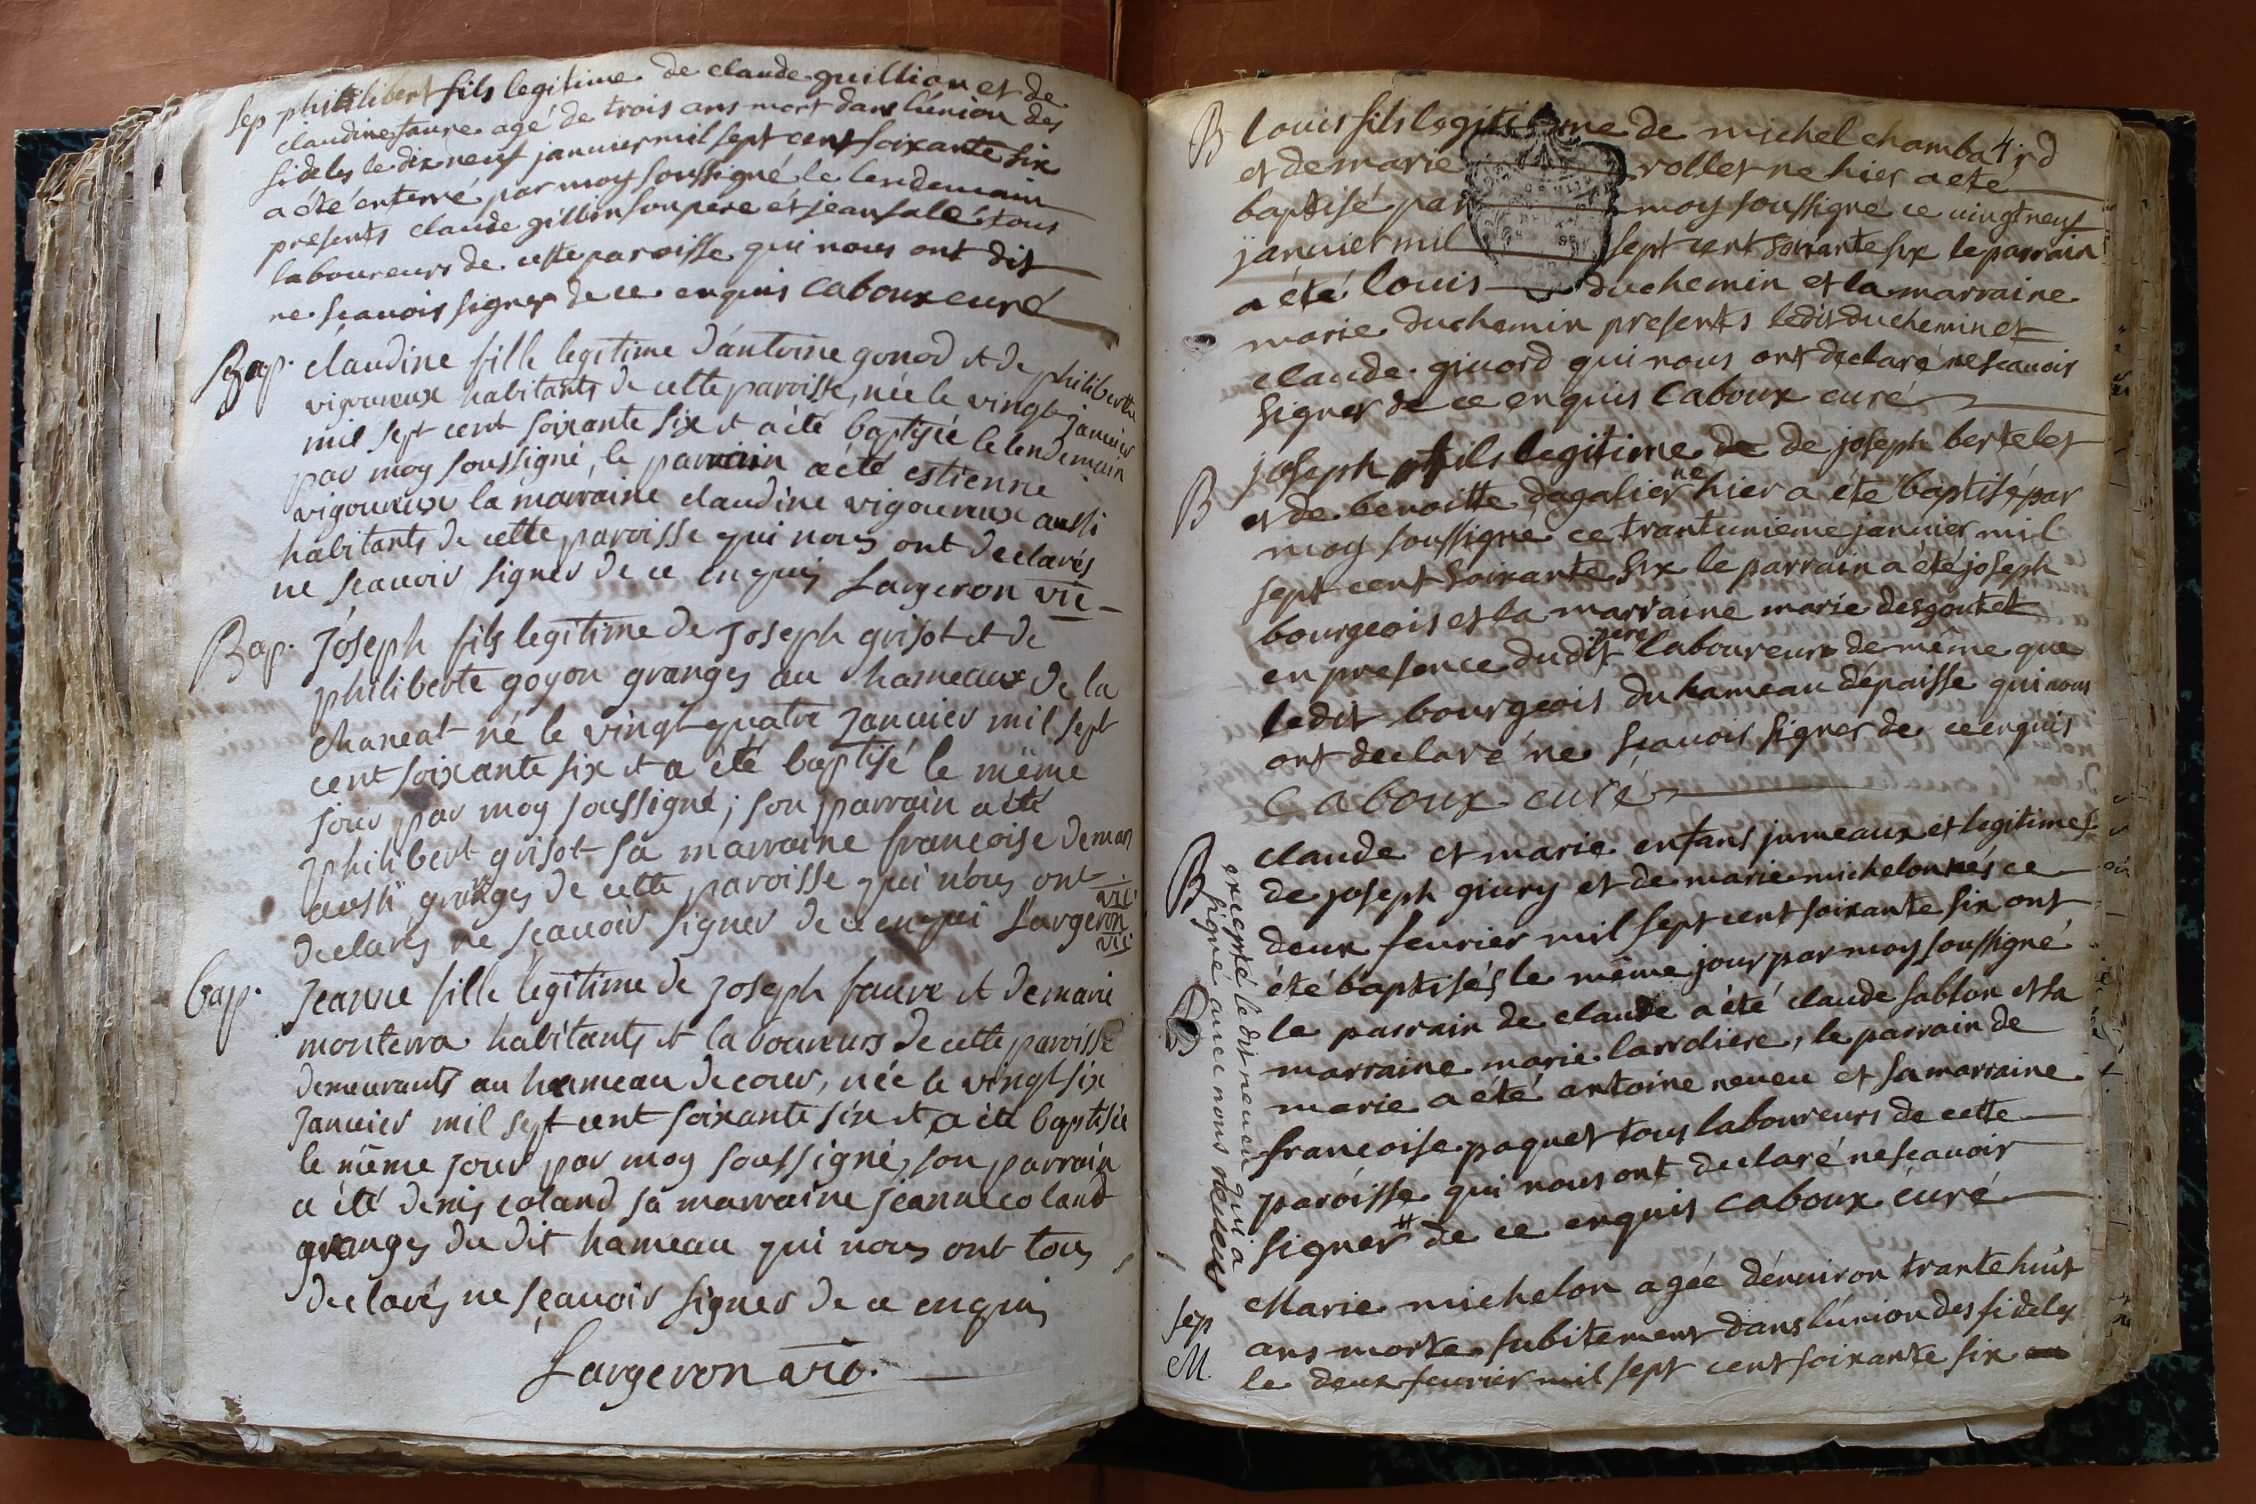 Sep philibert fils legitime de claude guillion et de
claudine faure agé de trois ans mort dans l'union des
fideles le dix neuf januier mil sept cent soixante six
a été enterré par moy soussigné le lendemain
presents claude gillin son pere et jean salé tous
laboureurs de cette paroisse qui nous ont dit
ne scauoir signer de ce enquis Caboux curé
Bap. claudine fille legitime d'antoine gonod et de philiberte
vigoureux habitants de cette paroisse, née le vingt januier
mil sept cent soixante six et a été baptisée le lendemain
par moy soussigné, le parrain a été estienne
vigoureux la marraine claudine vigoureux aussi
habitants de cette paroisse qui nous ont declarés
ne scauoir signer de ce enquis Largeron vic
Bap. Joseph fils legitime de Joseph grisot et de
philiberte goyon granges au hameaux de la
chaneat né le vingt quatre Januier mil sept
cent soixante six et a été baptisé le même
jour par moy soussigné ; son parrain a été
philibert grisot sa marraine francoise deman
aussi granges de cette paroisse qui nous ont
declarés ne scauoir signer de ce enquis Largeron
vic
bap. Jeanne fille legitime de Joseph faure et de marie
monterra habitants et laboureurs de cette paroisse
demeurants au hameau de cour, née le vingt six
Januier mil sept cent soixante six et a été baptisée
le même jour par moy soussigné, son parrain
a été denis coland sa marraine jeanne coland
granges du dit hameau qui nous ont tous
declarés ne sçauoir signer de ce enquis
Largeron vic.
4
B louis fils legitime de michel chambard
et de marie rollet ne hier a eté
baptisé par moy soussigné ce uingt neuf
januier mil sept cent soixante six le parrain
a été louis duchemin et la marraine
marie duchemin presents ledit duchemin et
claude giuord qui nous ont declaré ne scauoir
signer de ce enquis Caboux curé
B joseph fils legitime de de joseph bertelet
et de benoitte dagalier né hier a été baptisé par
moy soussigné ce trantunieme januier mil
sept cent soixante six le parrain a été joseph
bourgeois et la marraine marie desgoutet
en presence dudit pere laboureur de même que
ledit bourgeois du hameau d'épaisse qui nous
ont declaré ne sçauoir signer de ce enquis
Caboux curé
B claude et marie enfans jumeaux et legitimes
de joseph giury et de marie michelon nés ce
deux feurier mil sept cent soixante six ont
été baptisés le même jour par moy soussigné
B le parrain de claude a été claude sablon et la
marraine marie larrdiere, le parrain de
marie a été antoine neueu et sa marraine
francoise paquet tous laboureurs de cette
paroisse qui nous ont declaré ne scauoir
signer # de ce enquis caboux curé
excepté le dit neueu qui a
signé auec nous neueu
Sep Marie michelon agée d'enuiron trante huit
M. ans morte subitement dans l'union des fideles
le deux feurier mil sept cent soixante six